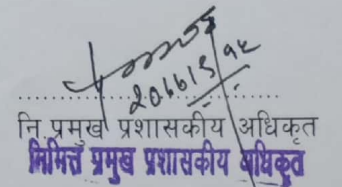 नि. प्रमुख प्रशासकीय अधिकृत
निमित्त प्रमुख प्रशासकीय अधिकृत